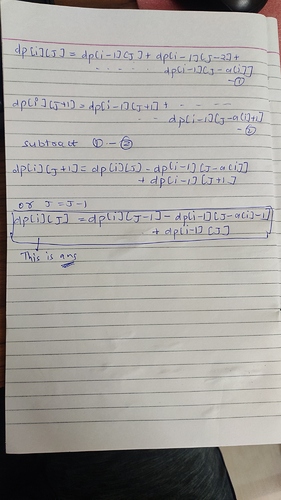 dp[i][J] = dp[i-1][J] + dp[i-1][J-2] +
- - - - - dp[i-1][J-a[i]]
- ①
dp[i][J+1] = dp[i-1][J+1] + - - - -
- - dp[i-1][J-a[i]+1]
- ②
subtract ① - ②
dp[i][J+1] = dp[i][J] - dp[i-1][J-a[i]]
+ dp[i-1][J+1]
or J = J-1
dp[i][J] = dp[i][J-1] - dp[i-1][J-a[i]-1]
+ dp[i-1][J]
This is ans